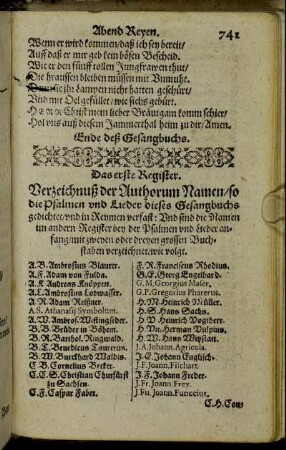 Abend Reyen. 741
Wenn er wird kommen/daß ich sey bereit/
Auff daß er mir geb kein bösen Bescheid.
Wie er den fünff tollen Jungfrawen thut/
Die draussen bleiben müssen mit Vnmuht.
sie ihr Lampen nicht hatten geschürt/
Vnd mit Oel gefüllet/ wie sichs gebürt.
HErr Christ mein lieber Bräutgam komm schier/
Hol vns auß diesem Jammerthal heim zu dir/Amen.
Ende deß Gesangbuchs.
Das erste Register.
Verzeichnuß der Authorum Namen/so
die Psalmen vnd Lieder dieses Gesangbuchs
gedichtet/vnd in Reymen verfast: Vnd send die Namen
im andern Register bey der Psalmen vnd Lieder an-
fang/mit zweyen oder dreyen grossen Buch-
staben verzeichnet/wie volgt.
A.B. Ambrosius Blaurer.
A.F. Adam von Fulda.
A.K Andreas Knöppen.
A.L. Ambrosius Lobwasser.
A.R Adam Reißner.
A.S. Athanasij Symbolum.
A.W. Ambros. Westingfelder.
B.B. Brüder in Böhem.
B.R. Barthol. Ringwald.
B.T. Benedicus Tamerus.
B.W. Burckhard Waldis.
C.B. Cornelius Becker.
C.C.S. Christian Churfürst
zu Sachsen.
C.F. Caspar Faber.
F.R. Franciscus Rhodius.
G.E. Georg Engelhard.
G.M. Georgius Maier,
G.P. Gregorius Pharerus.
H.M Heinrich Müller.
H.S Hans Sachs.
H.V Heinrich Vogtherr.
H.Vu. Herman Vulpius.
H.W. Hans Witzstatt.
J.A. Johann. Agricola.
J.E. Johann Englisch.
J.F. Joann, Filchart.
J.F. Johann Freder.
J.Fr. Joann Frey.
J.Fu. Joann. Funccius.
C.H. Con-